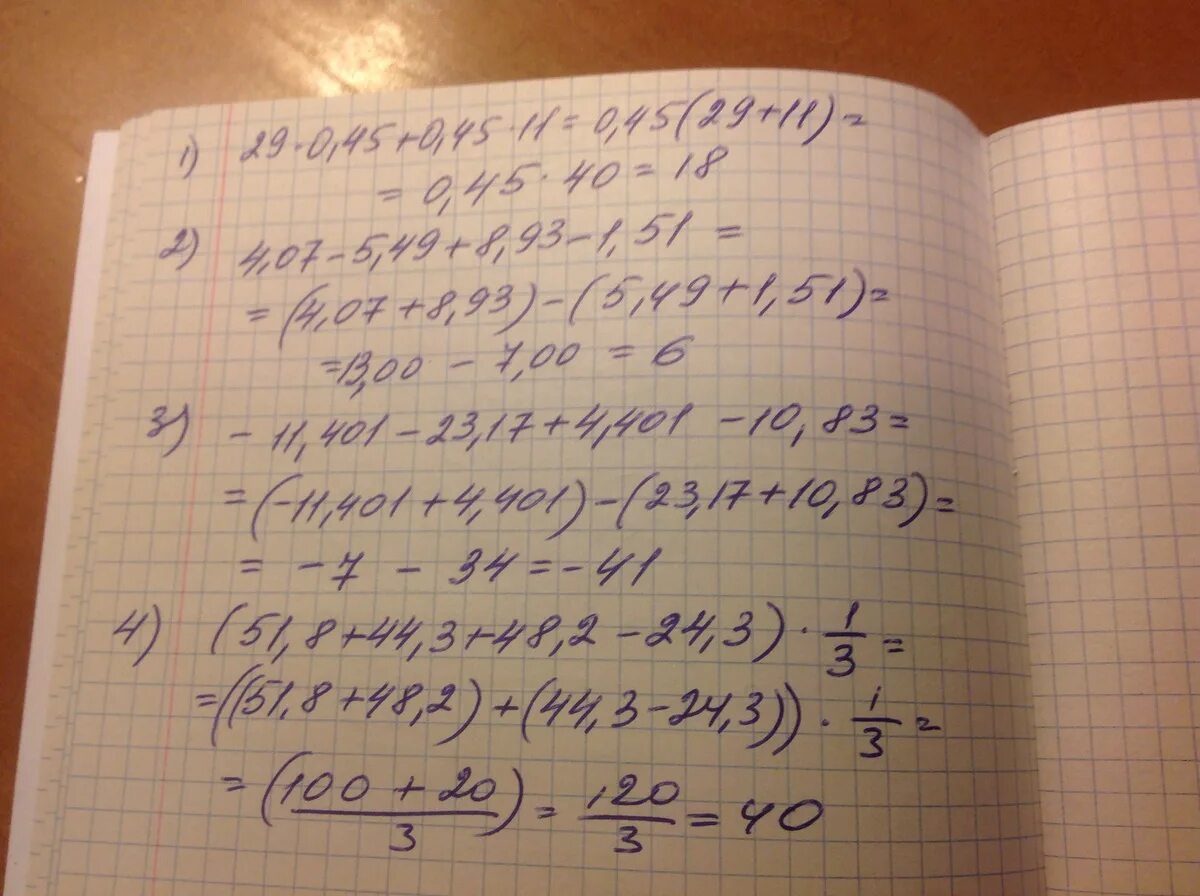 1) 29·0,45+0,45·11=0,45(29+11)=
=0,45·40=18
2) 4,07-5,49+8,93-1,51=
=(4,07+8,93)-(5,49+1,51)=
=13,00-7,00=6
3) -11,401-23,17+4,401-10,83=
=(-11,401+4,401)-(23,17+10,83)=
=-7-34=-41
4) (51,8+44,3+48,2-24,3)·1/3=
=((51,8+48,2)+(44,3-24,3))·1/3=
=(100+20)/3=120/3=40